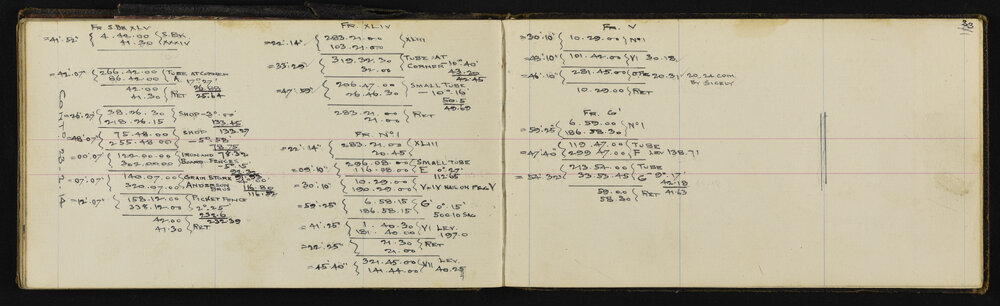 33
FR. S.BK XLV
= 41°.52' { 4.42.00 } S.BK
41.30 } XXXIV
= 42°.07' { 266.42.00 } TUBE AT CORNER
86.42.00 } A. 17°27'
42.00
41.30 } RET 25.64
= 26°.27' { 38.26.30 } SHOP -3°.00'
218.26.15 } 133.45
133.27
= 48°.07' { 75.48.00 } SHOP
255.48.00 } -5°.58'
78.75
78.32
= 00°.07' { 122.00.00 } IRON AND
302.00.00 } BOARD FENCES
-5°.15'
= 07°.07' { 140.07.00 } GRAIN STORE
320.07.00 } ANDERSON BROS
116.80
116.32
= 12°.07' { 158.12.00 } PICKET FENCE
338.12.00 } 2°.25'
232.6
232.39
42.00
41.30 } RET
FR. XLIV
= 22°.14' { 283.21.00 } XLIII
103.21.00
= 33°.29' { 319.32.30 } TUBE AT
32.00 } CORNER 10°.40'
43.20
42.45
= 47°.59' { 206.47.00 } SMALL TUBE
26.46.30 } -10°.16
50.5
49.69
283.21.00
21.00 } RET
FR. No 1
= 22°.14' { 283.21.00 } XLIII
20.45
= 09°.10' { 296.08.00 } SMALL TUBE
116.08.00 } E 0°.27'
112.65
= 30°.10' { 10.29.00
190.29.00 } V
= 59°.25' { 6.58.15 } G'
186.58.15 } 0°.15'
500.10 SAG
= 41°.25' { 1.40.30 } VI LEV.
181.40.00 } 197.0
= 22°.25' { 21.30 } RET
21.00
= 45°.40' { 321.45.00 } VII LEV.
141.44.00 } 40.25
FR. V
= 30°.10' { 10.29.00 } No 1
= 43°.10' { 101.42.00 } VI 30.18
= 46°.10' { 281.45.00 } OPP. 20.31 20.24 COM.
BY SICELY
10.29.00 } RET
FR. G'
= 59°.25' { 6.59.00 } No 1
186.58.30
119.47.00 } TUBE
= 47°.40' { 299.47.00 } F LEV 138.71
213.54.00 } TUBE
= 53°.32' { 33.53.45 } G -9°.17'
42.18
41.63
59.00 } RET
58.30